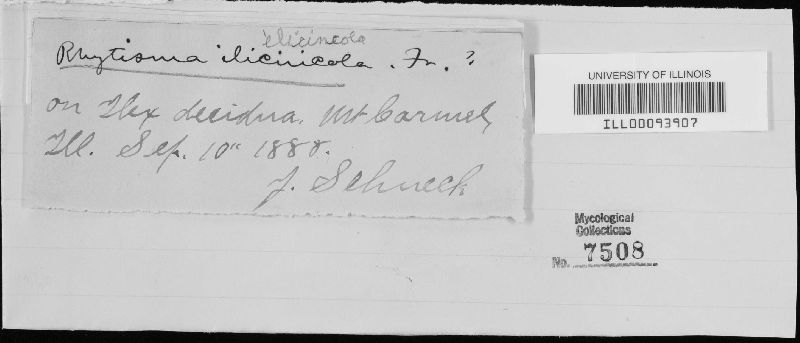 ilicincola
Rhytisma ilicinicola. Fr. ?
on Ilex decidua. Mt Carmel,
Ill. Sep. 10" 1888.
J. Schneck
UNIVERSITY OF ILLINOIS
ILL00093907
Mycological
Collections
No. 7508